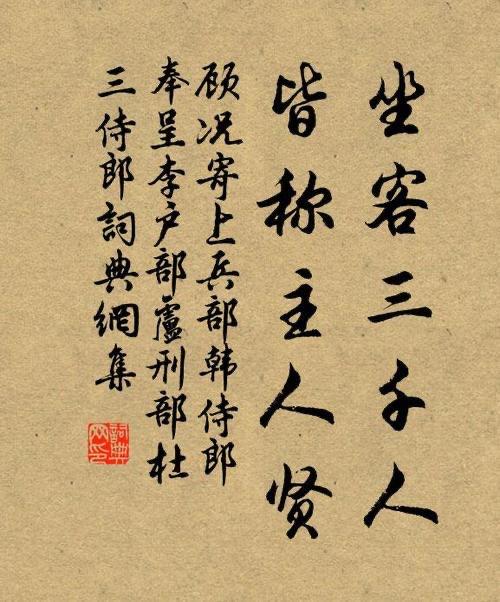 坐客三千人
皆称主人贤
顾况寄上兵部韩侍郎
奉呈李户部盧刑部杜
三侍郎詞典網集
詞典
网印